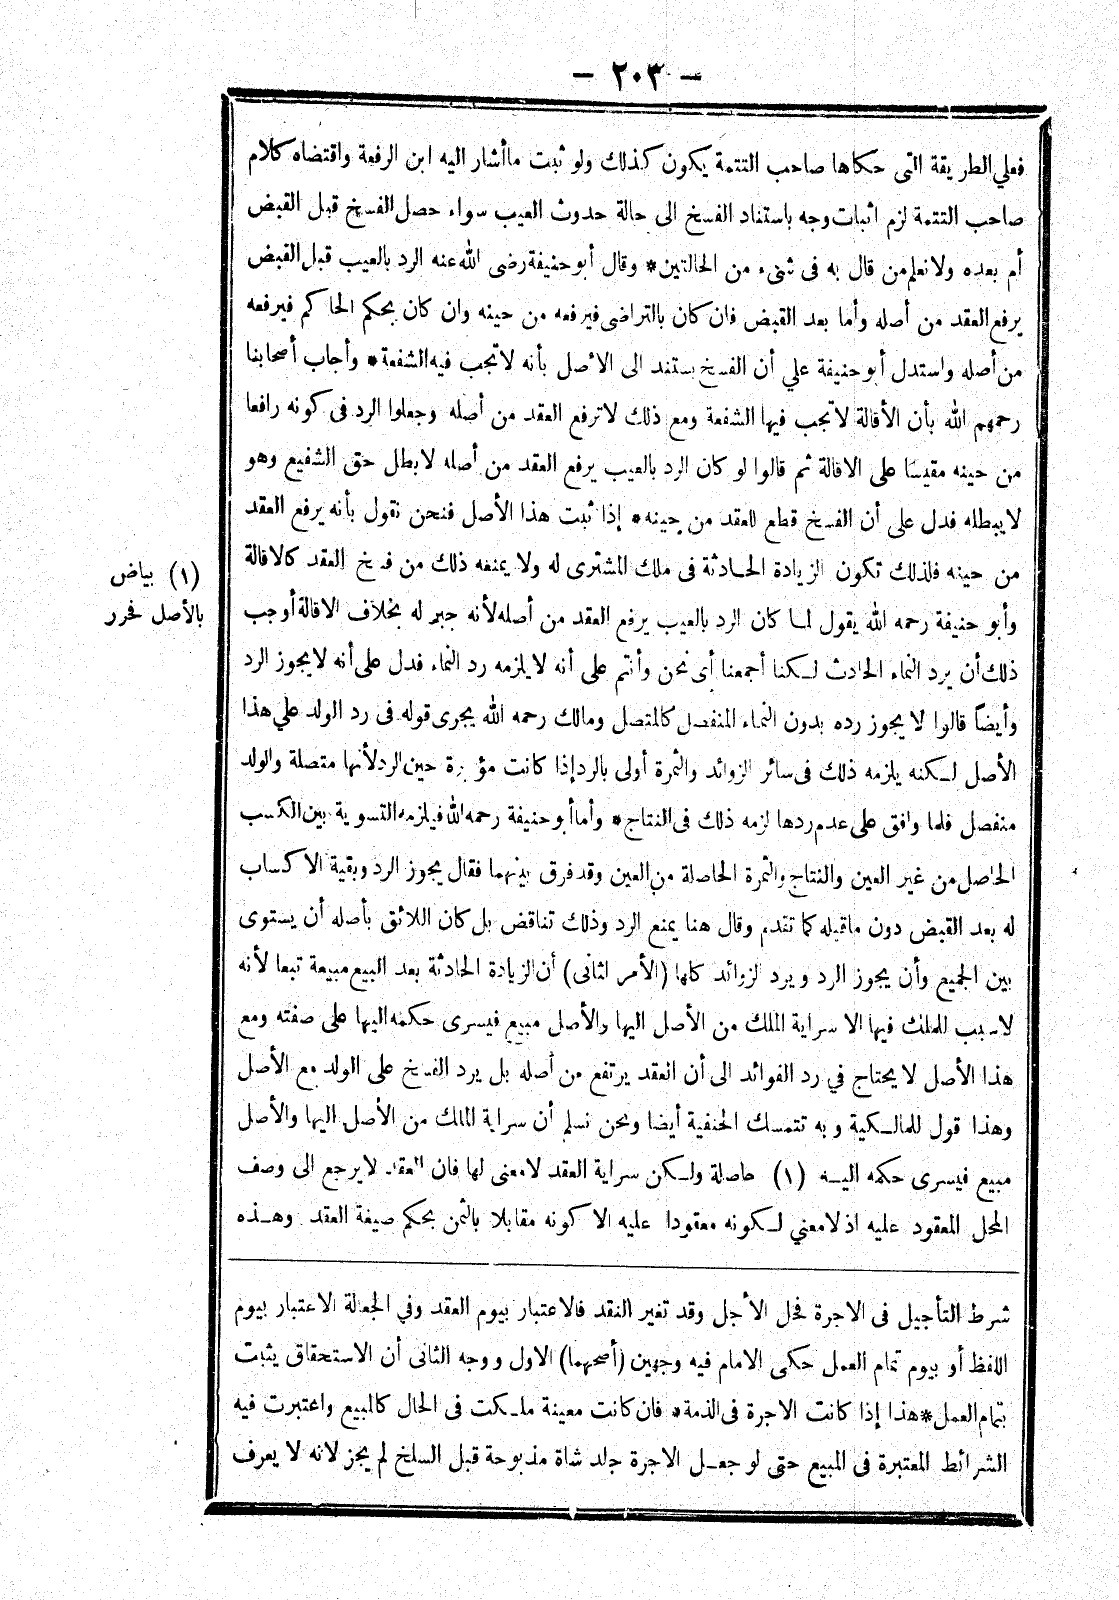 — ٢٠٣ —
فعلي الطريقة التى حكاها صاحب التتمة يكون كذلك ولو ثبت ما أشار اليه ابن الرفعة واقتضاه كلام
صاحب التتمة لزم اثبات وجه باستناد الفسخ الى حالة حدوث العيب سواء حصل الفسخ قبل القبض
أم بعده ولا نعلم من قال به فى شىء من الحالتين * وقال أبو حنيفة رضى الله عنه الرد بالعيب قبل القبض
يرفع العقد من أصله وأما بعد القبض فان كان بالتراضى فيرفعه من حينه وان كان بحكم الحاكم فيرفعه
من أصله واستدل أبو حنيفة علي أن الفسخ يستند الى الأصل بأنه لا تجب فيه الشفعة * وأجاب أصحابنا
رحمهم الله بأن الأقالة لا تجب فيها الشفعة ومع ذلك لا ترفع العقد من أصله وجعلوا الرد فى كونه رافعا
من حينه مقيسا على الاقالة ثم قالوا لو كان الرد بالعيب يرفع العقد من أصله لابطل حق الشفيع وهو
لا يبطله فدل على أن الفسخ قطع للعقد من حينه * إذا ثبت هذا الأصل فنحن نقول بأنه يرفع العقد
من حينه فلذلك تكون الزيادة الحادثة فى ملك المشترى له ولا يمنعه ذلك من فسخ العقد كالاقالة
وأبو حنيفة رحمه الله يقول لما كان الرد بالعيب يرفع العقد من أصله لأنه جبر له بخلاف الاقالة أوجب
ذلك أن يرد النماء الحادث لكنا أجمعنا أى نحن وأنتم على أنه لا يلزمه رد النماء فدل على أنه لا يجوز الرد
وأيضاً قالوا لا يجوز رده بدون النماء المنفصل كالمتصل ومالك رحمه الله يجرى قوله فى رد الولد علي هذا
الأصل لكنه يلزمه ذلك فى سائر الزوائد والثمرة أولى بالرد إذا كانت مؤبرة حين الرد لأنها متصلة والولد
منفصل فلما وافق على عدم ردها لزمه ذلك فى النتاج * وأما أبو حنيفة رحمه الله فيلزمه التسوية بين الكسب
الحاصل من غير العين والنتاج والثمرة الحاصلة من العين وقد فرق بينهما فقال يجوز الرد وبقية الاكساب
له بعد القبض دون ما قبله كما تقدم وقال هنا يمنع الرد وذلك تناقض بل كان اللائق بأصله أن يستوى
بين الجميع وأن يجوز الرد ويرد الزوائد كلها (الأمر الثانى) أن الزيادة الحادثة بعد البيع مبيعة تبعا لأنه
لا سبب للملك فيها الا سراية الملك من الأصل اليها والأصل مبيع فيسرى حكمه اليها على صفته ومع
هذا الأصل لا يحتاج في رد الفوائد الى أن العقد يرتفع من أصله بل يرد الفسخ على الولد مع الأصل
وهذا قول للمالكية وبه تتمسك الحنفية أيضا ونحن نسلم أن سراية الملك من الأصل اليها والأصل
مبيع فيسرى حكمه اليه (١) حاصلة ولكن سراية العقد لا معنى لها فان العقد لا يرجع الى وصف
المحل المعقود عليه اذ لا معني لكونه معقودا عليه الا كونه مقابلا بالثمن بحكم صيغة العقد وهذه
(١) بياض
بالأصل فحرر
شرط التأجيل فى الاجرة فحل الأجل وقد تغير النقد فالاعتبار بيوم العقد وفي الجعالة الاعتبار بيوم
اللفظ أو بيوم تمام العمل حكى الامام فيه وجهين (أصحهما) الاول ووجه الثانى أن الاستحقاق يثبت
بتمام العمل * هذا إذا كانت الاجرة فى الذمة * فان كانت معينة ملكت فى الحال كالمبيع واعتبرت فيه
الشرائط المعتبرة فى المبيع حتى لو جعل الاجرة جلد شاة مذبوحة قبل السلخ لم يجز لانه لا يعرف